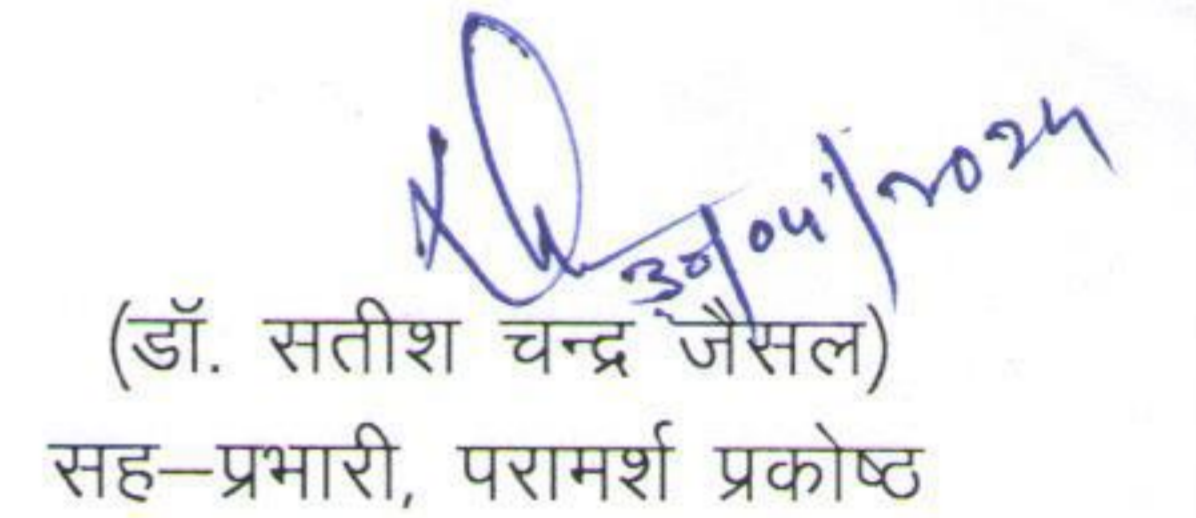 30/04/2024
(डॉ. सतीश चन्द्र जैसल)
सह–प्रभारी, परामर्श प्रकोष्ठ